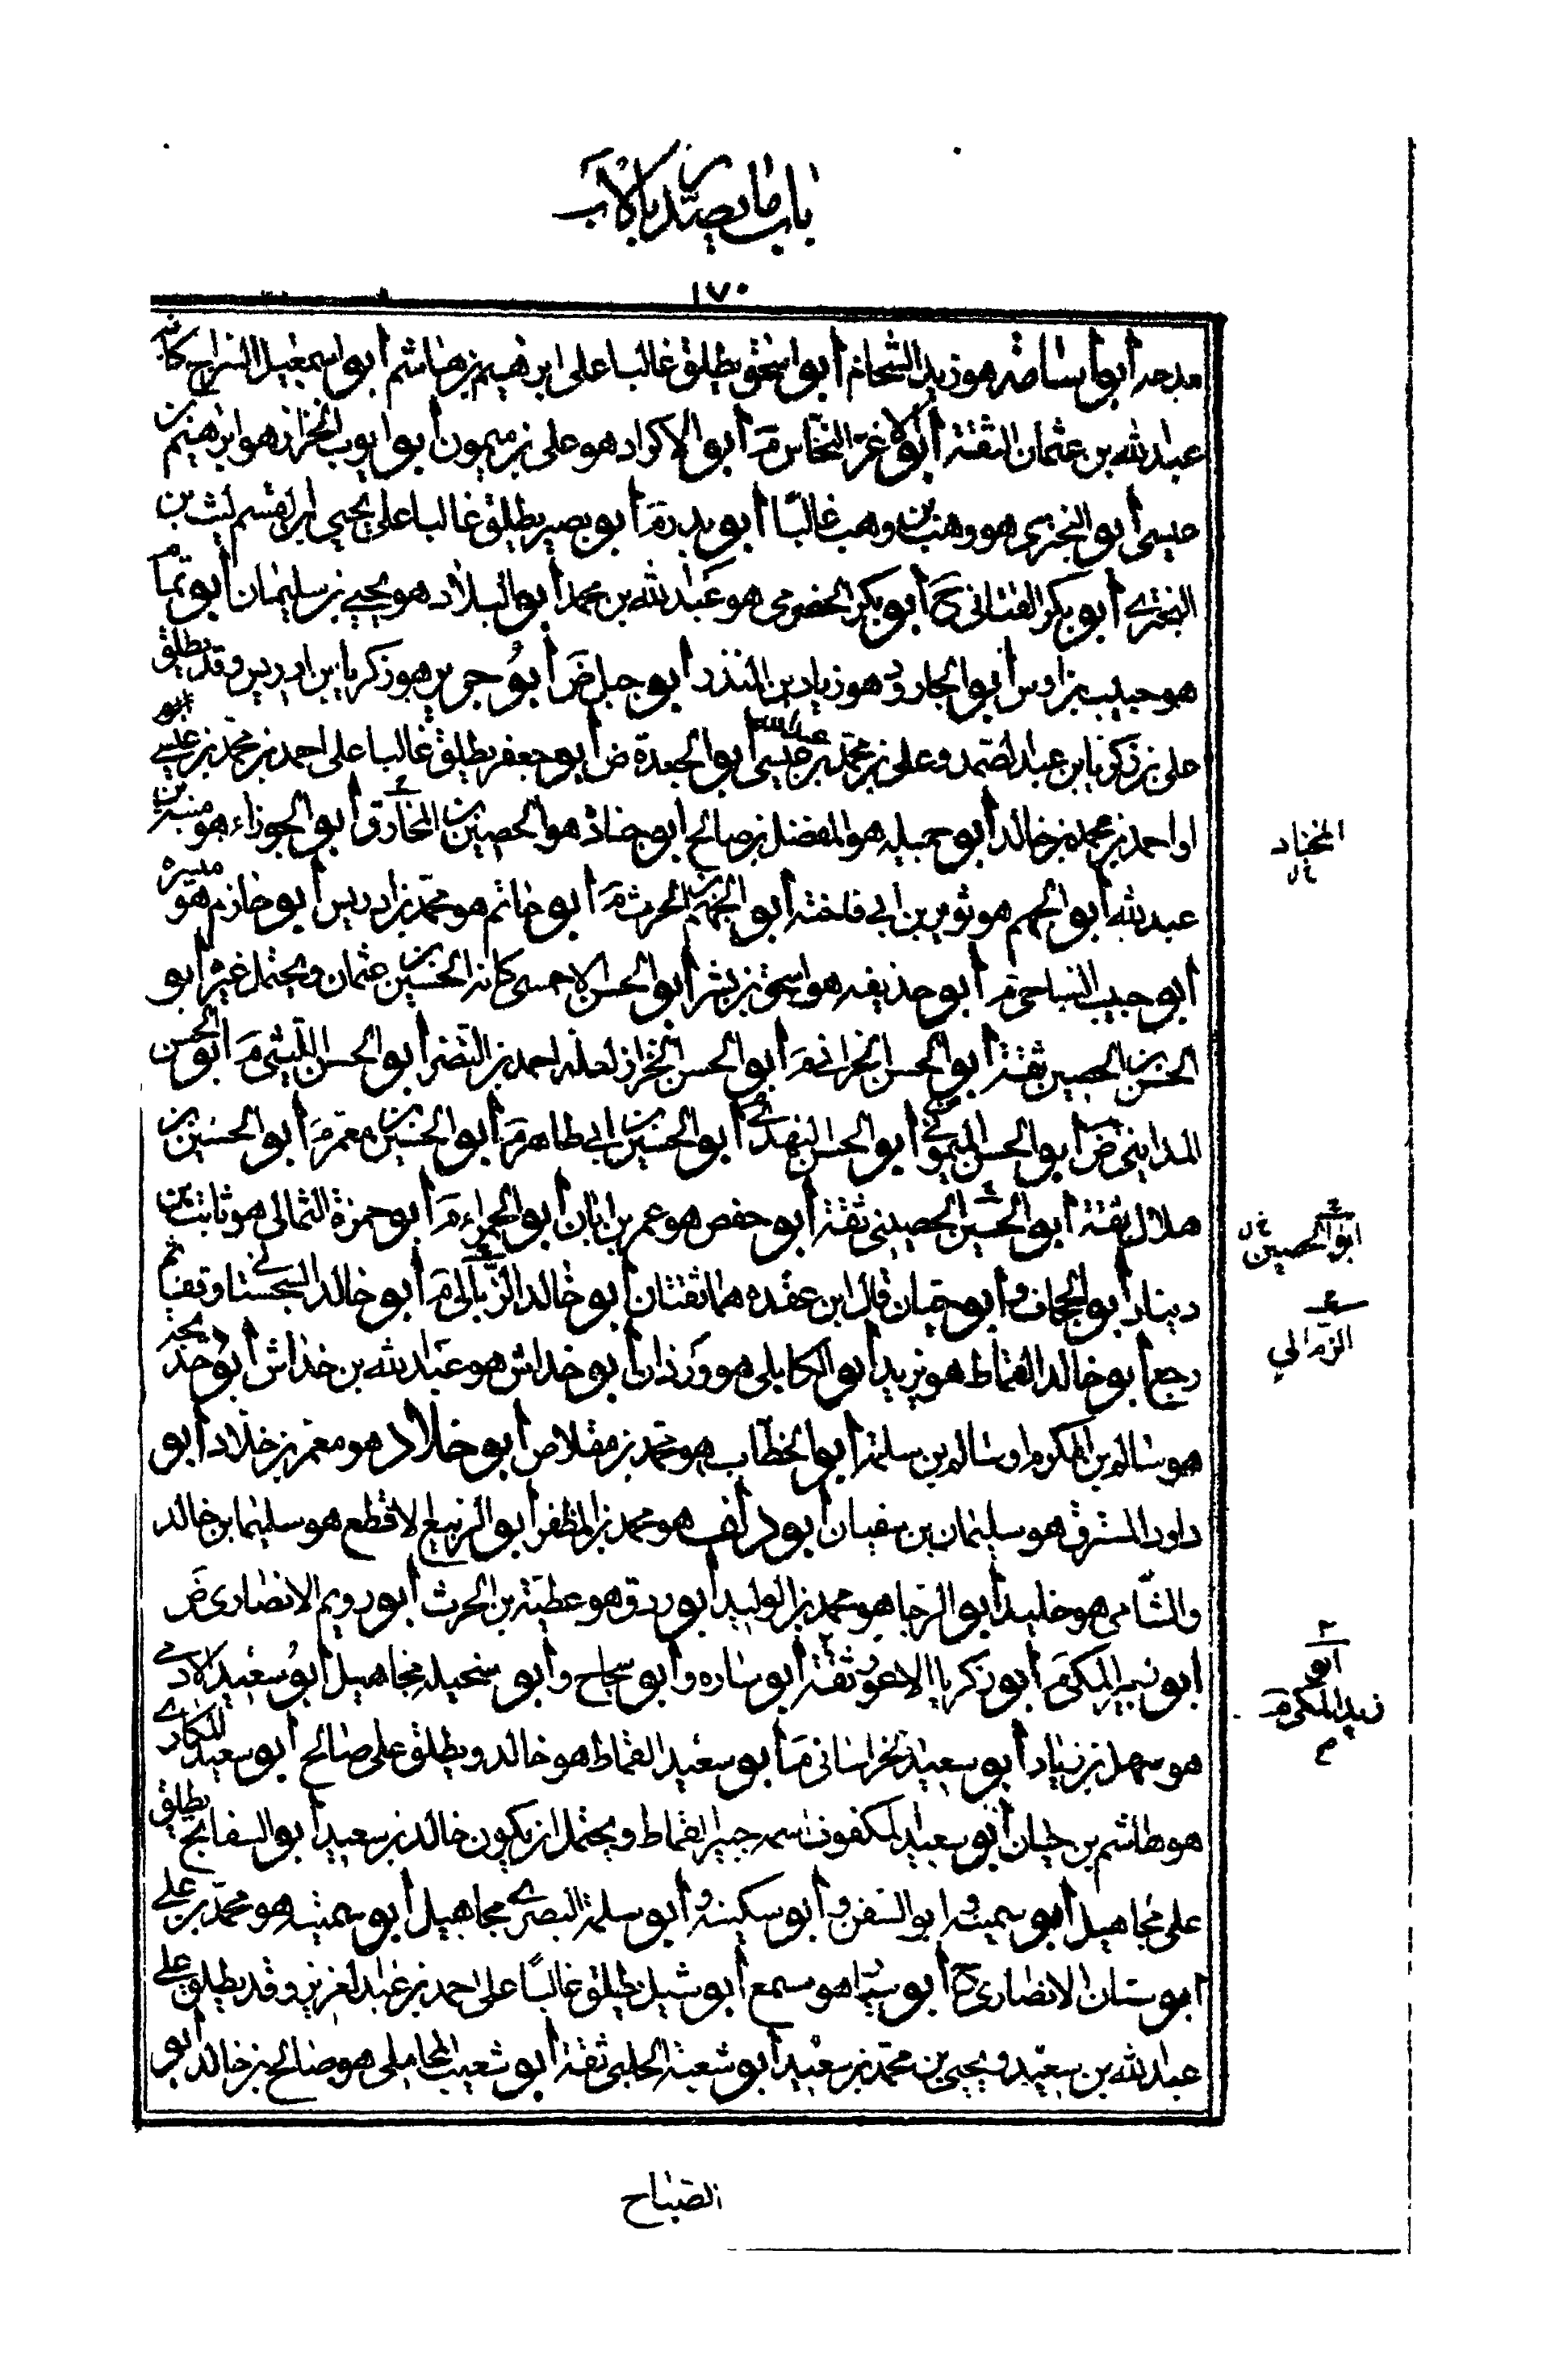 باب ما يصدّر بالاب
١٧٠
مدحه أبو أسامة هو زيد الشحام أبو اسحق يطلق غالبا على ابرهيم بن هاشم أبو اسمعيل السراج كانه
عبد الله بن عثمان الثقة أبو الاغر النخاس م أبو الاكراد هو على بن ميمون أبو ايوب الخزاز هو ابرهيم بن
عيسى أبو البخترى هو وهب بن وهب غالبًا أبو بدر م أبو بصير يطلق غالبا على يحيى ابى القسم ليث بن
البخترى أبو بكر القنانى ح أبو بكر الحضرمى هو عبد الله بن محمد أبو البلاد هو يحيى بن سليمان أبو تمام
هو حبيب بن اوس أبو الجارود هو زياد بن المنذر أبو جبل ض أبو جرير هو زكريا بن ادريس وقد يطلق
على زكريا بن عبد الصمد وعلى بن محمد بن عيسى أبو الجعدة ض أبو جعفر يطلق غالبا على احمد بن محمد بن عيسى
او احمد بن محمد بن خالد أبو جميله هو المفضل بن صالح أبو جنادة هو الحصين بن المخارق أبو الجوزاء هو منبه بن
عبد الله أبو الجهم هو ثوير بن ابى فاخته أبو الجهم بن الحرث م أبو حاتم هو محمد بن ادريس أبو حازم هو ميسره
أبو حبيب النباحى م أبو حذيفه هو اسحق بن بشر أبو الحسن الاحمسى كانه الحسين بن عثمان ويحتمل غيره أبو
الحسن بن الحصين ثقة أبو الحسن م أبو الحسن الخزاز لعله احمد بن النضر أبو الحسن الليثى م أبو الحسن
المداينى ض أبو الحسن أبو الحسن النهدى أبو الحسين بن ابى طاهر م أبو الحسين بن معمر م أبو الحسين بن
هلال ثقة أبو الحسين الحصينى ثقة أبو حفص هو عمر بن ابان أبو الحمراء م أبو حمزة الثمالى هو ثابت بن
دينار أبو الجحاف و أبو حيان قال ابن عقده هما ثقتان أبو خالد الزبالى م أبو خالد السجستانى وقف ثم
رجع أبو خالد القماط هو يزيد أبو الكابلى هو وردان أبو خداش هو عبد الله بن خداش أبو خديجة
هو سالم بن المكرم او سالم بن سلمة أبو الخطاب هو محمد بن مقلاص أبو خلاد هو معمر بن خلاد أبو
داود المسترق هو سليمان بن سفيان أبو دلف هو محمد بن المظفر أبو الربيع الاقطع هو سليمان بن خالد
والشامى هو خليد أبو الرجا هو محمد بن الوليد أبو روق هو عطية بن الحرث أبو رويم الانصارى ض
أبو زكريا الاعور ثقة أبو ساره و أبو سجاح و أبو سخيله مجاهيل أبو سعيد الادمى
هو سهل بن زياد أبو سعيد الخراسانى م أبو سعيد القماط هو خالد ويطلق على صالح أبو سعيد المكارى
هو هاشم بن حيان أبو سعيد المكفوف اسمه القماط ويحتمل ان يكون خالد بن سعيد أبو السفاتج يطلق
على مجاهيل أبو و ابو السفن و أبو سكينه و أبو سلمة البصرى مجاهيل أبو سمينه هو محمد بن على
أبو سنان الانصارى ح أبو سيار هو مسمع أبو شبل يطلق غالبًا على احمد بن عبد العزيز وقد يطلق على
عبد الله بن سعيد ويحيى بن محمد بن سعيد أبو شعبة الحلبى ثقة أبو شعيب المحاملى هو صالح بن خالد أبو
الصباح
ابو الحصين خ ل
ابو
زيد المكى م